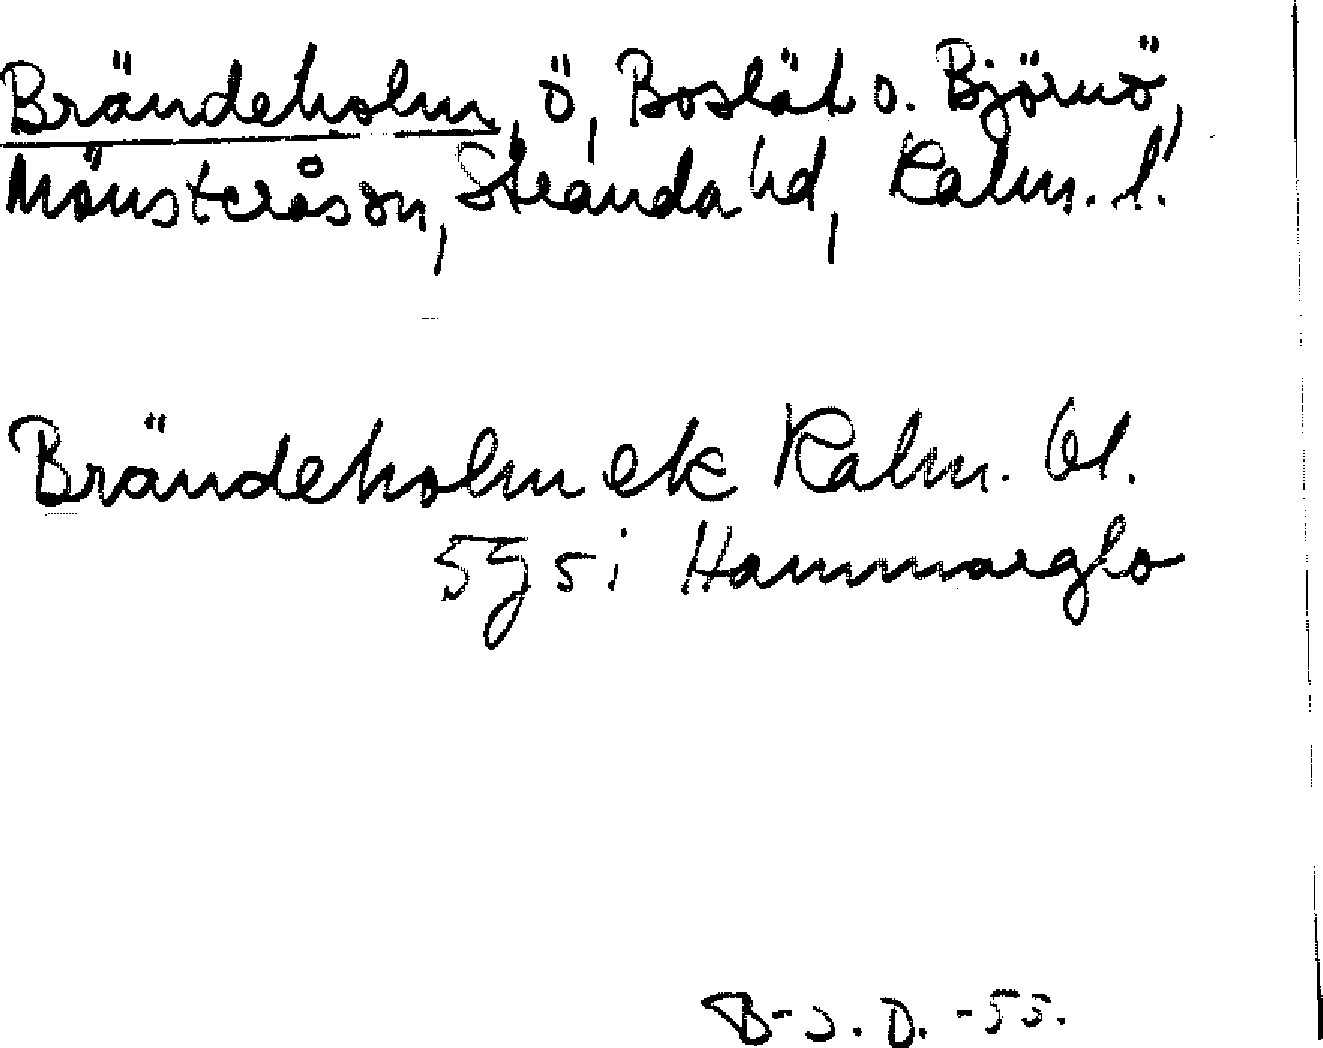 Brändeholm, ö, Boslät o. Björnö,
Mönsterås sn, Stranda hd, Kalm. l.
Brändeholm ek Kalm. bl.
5 g 5 i Hammarglo
B-J. D. -55.